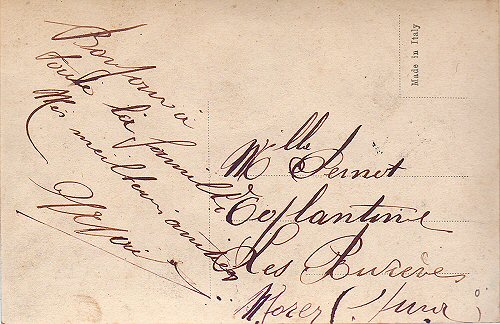 Bonjour à
toute la famille
Mes meilleurs amitiés
Made in Italy
Mlle Pernot
Les
Morez (Jura)